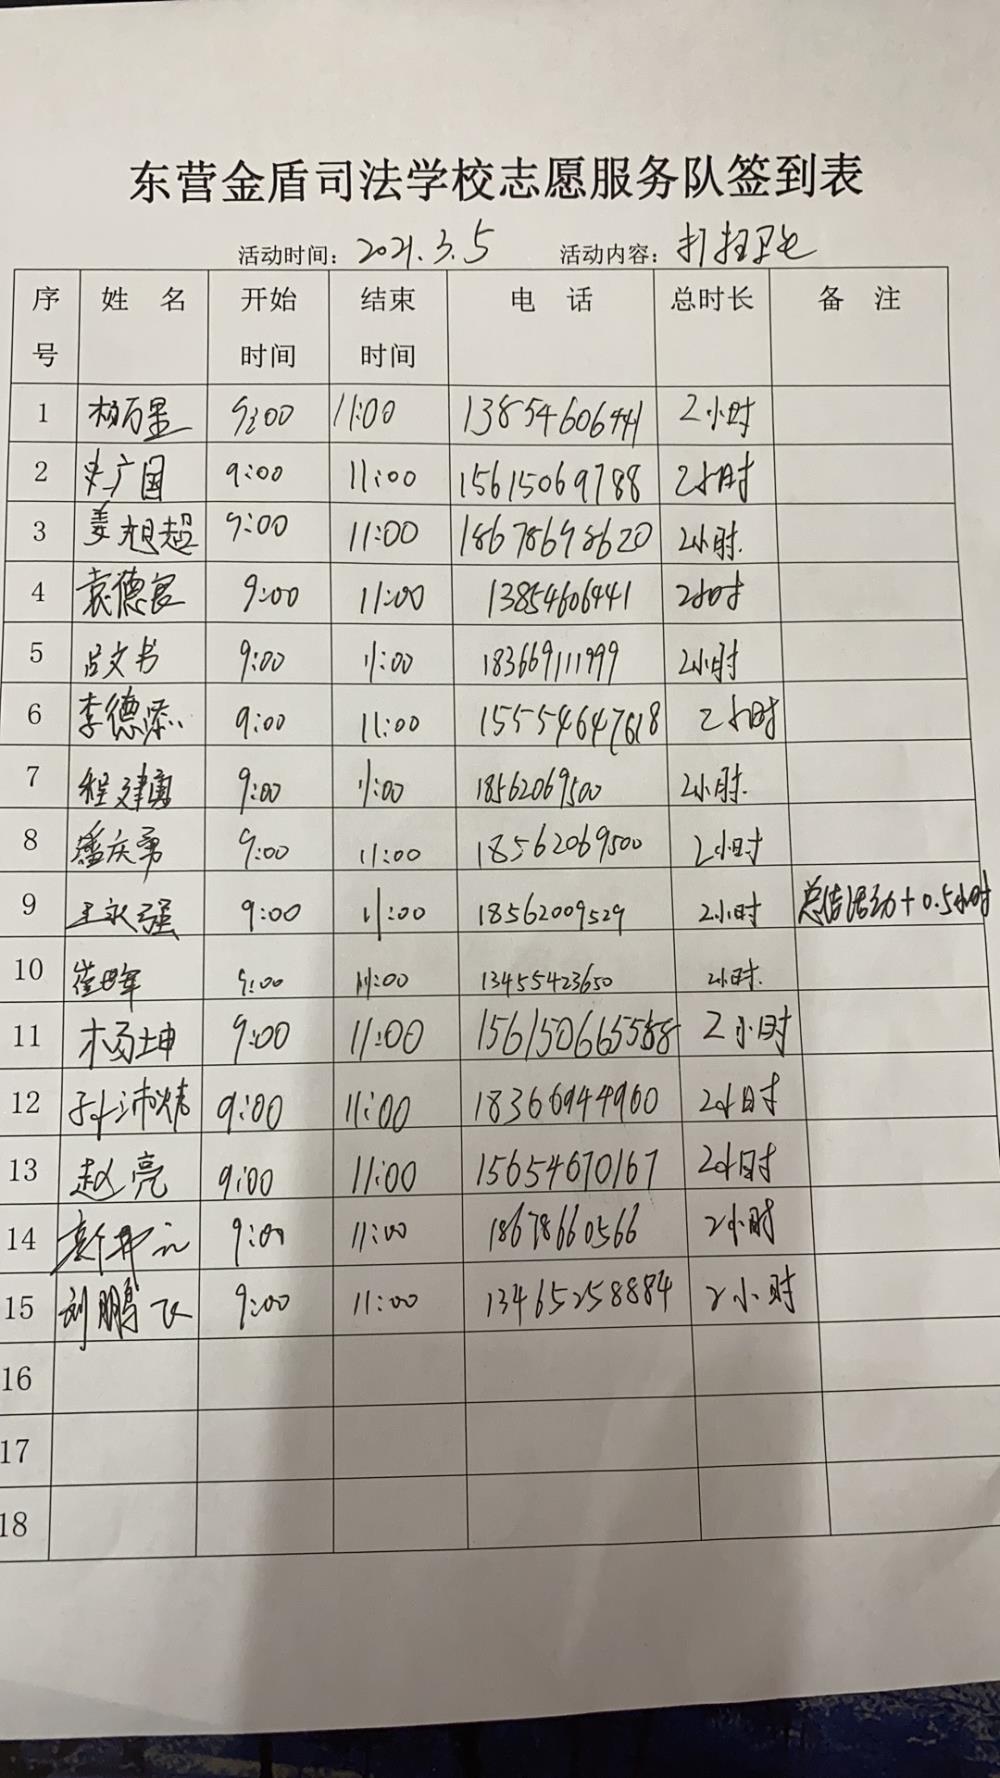 东营金盾司法学校志愿服务队签到表
活动时间：2021.3.5 活动内容：打扫卫生
序号 姓 名 开始时间 结束时间 电 话 总时长 备 注
1 杨万里 9:00 11:00 13854606441 2小时
2 广国 9:00 11:00 15615069788 2小时
3 姜想超 9:00 11:00 18678698620 2小时.
4 袁德良 9:00 11:00 13854606441 2小时
5 吕文书 9:00 11:00 183669111999 2小时
6 李德添 9:00 11:00 15554647618 2小时
7 程建勇 9:00 11:00 18562069500 2小时.
8 潘庆勇 9:00 11:00 18562069500 2小时
9 王永强 9:00 11:00 18562009529 2小时 总结活动+0.5小时
10 崔 9:00 11:00 13455423650 2小时.
11 杨坤 9:00 11:00 2小时
12 孙沛炜 9:00 11:00 18366944960 2小时
13 赵亮 9:00 11:00 15654670167 2小时
14 9:00 11:00 18678660566 2小时
15 刘鹏飞 9:00 11:00 13465258884 2小时
16
17
18